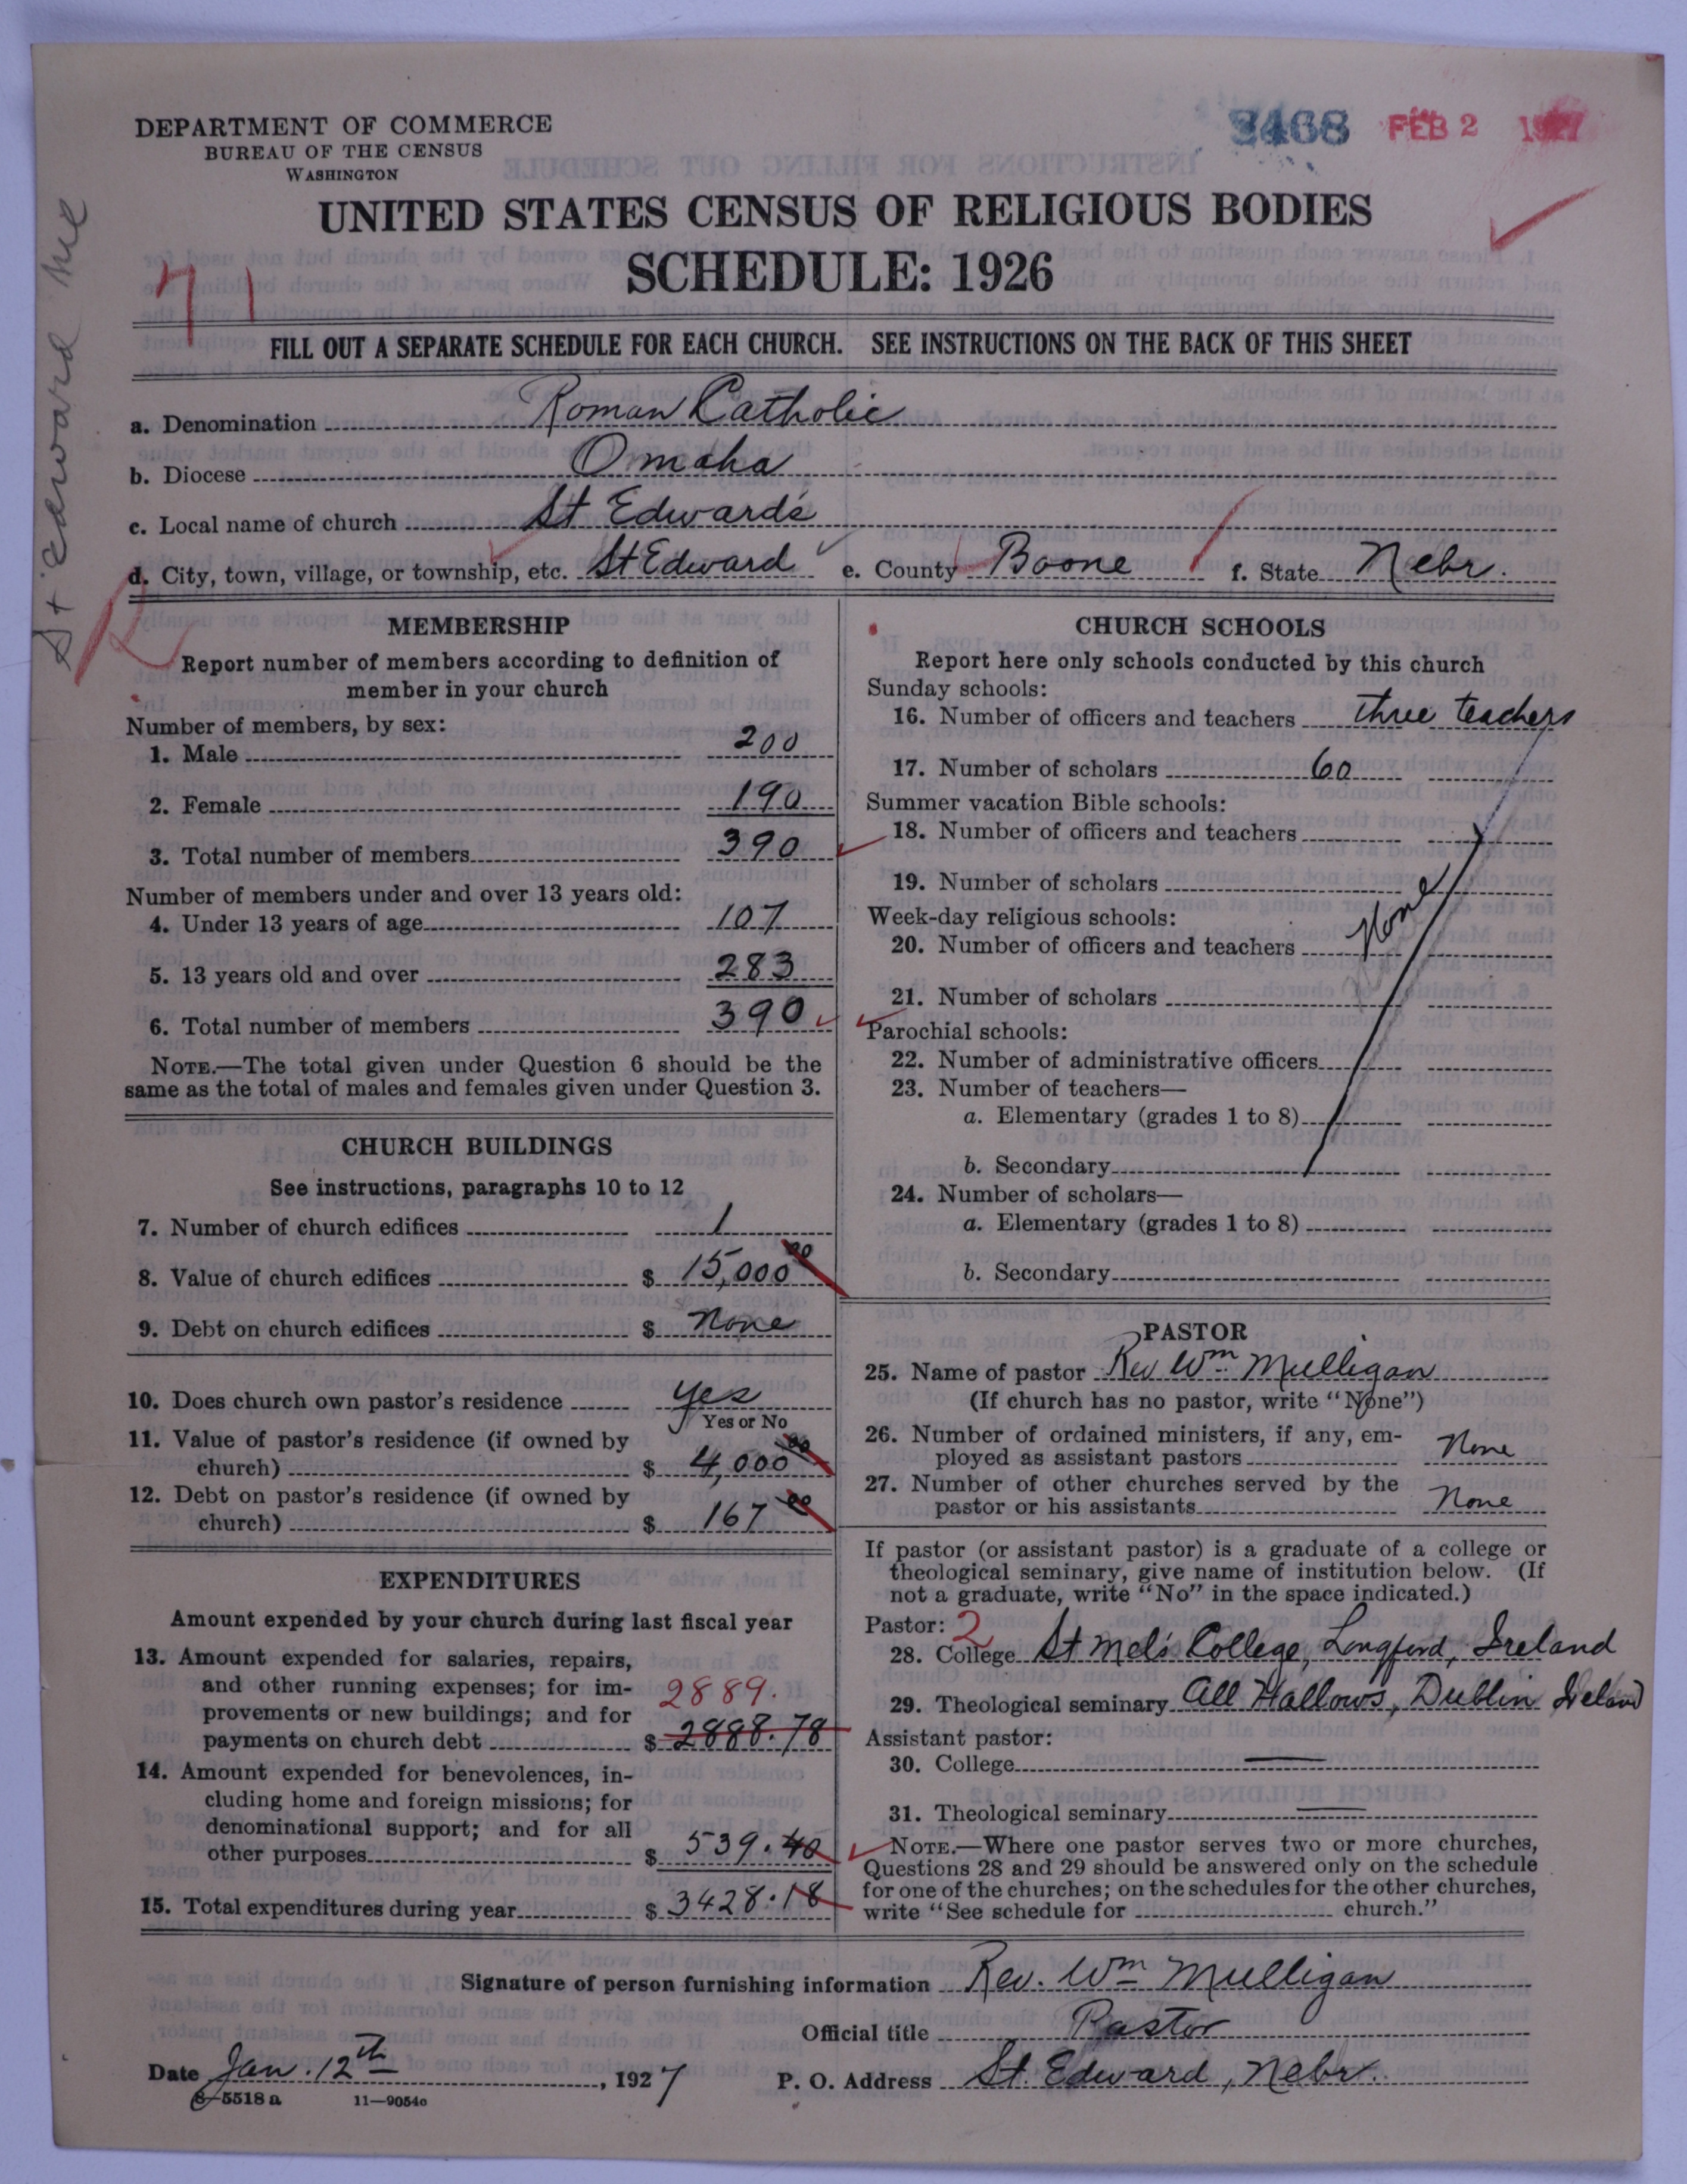 DEPARTMENT OF COMMERCE
BUREAU OF THE CENSUS
WASHINGTON
3468 FEB 2 1927
UNITED STATES CENSUS OF RELIGIOUS BODIES
SCHEDULE: 1926
71
FILL OUT A SEPARATE SCHEDULE FOR EACH CHURCH. SEE INSTRUCTIONS ON THE BACK OF THIS SHEET
a. Denomination Roman Catholic
b. Diocese Omaha
c. Local name of church St Edward's
d. City, town, village, or township, etc. St Edward e. County Boone f. State Nebr.
St Edward
MEMBERSHIP
Report number of members according to definition of
member in your church
Number of members, by sex:
1. Male 200
2. Female 190
3. Total number of members 390
Number of members under and over 13 years old:
4. Under 13 years of age 107
5. 13 years old and over 283
6. Total number of members 390
NOTE.—The total given under Question 6 should be the
same as the total of males and females given under Question 3.
CHURCH BUILDINGS
See instructions, paragraphs 10 to 12
7. Number of church edifices 1
8. Value of church edifices $ 15,000 00
9. Debt on church edifices $ None
10. Does church own pastor's residence yes
Yes or No
11. Value of pastor's residence (if owned by
church) $ 4,000 00
12. Debt on pastor's residence (if owned by
church) $ 167 00
EXPENDITURES
Amount expended by your church during last fiscal year
13. Amount expended for salaries, repairs,
and other running expenses; for im-
provements or new buildings; and for 2889.
payments on church debt $ 2888.78
14. Amount expended for benevolences, in-
cluding home and foreign missions; for
denominational support; and for all
other purposes $ 539.40
15. Total expenditures during year $ 3428.18
CHURCH SCHOOLS
Report here only schools conducted by this church
Sunday schools:
16. Number of officers and teachers three teachers
17. Number of scholars 60
Summer vacation Bible schools:
18. Number of officers and teachers
19. Number of scholars
Week-day religious schools:
20. Number of officers and teachers None
21. Number of scholars
Parochial schools:
22. Number of administrative officers
23. Number of teachers—
a. Elementary (grades 1 to 8)
b. Secondary
24. Number of scholars—
a. Elementary (grades 1 to 8)
b. Secondary
PASTOR
25. Name of pastor Rev Wm Mulligan
(If church has no pastor, write "None")
26. Number of ordained ministers, if any, em-
ployed as assistant pastors None
27. Number of other churches served by the
pastor or his assistants None
If pastor (or assistant pastor) is a graduate of a college or
theological seminary, give name of institution below. (If
not a graduate, write "No" in the space indicated.)
Pastor: 2
28. College St Mel's College, Longford, Ireland
29. Theological seminary All Hallows, Dublin Ireland
Assistant pastor:
30. College
31. Theological seminary
NOTE.—Where one pastor serves two or more churches,
Questions 28 and 29 should be answered only on the schedule
for one of the churches; on the schedules for the other churches,
write "See schedule for church."
Signature of person furnishing information Rev. Wm Mulligan
Official title Pastor
Date Jan. 12th, 1927 P. O. Address St. Edward, Nebr.
8-5518 a 11—9054a